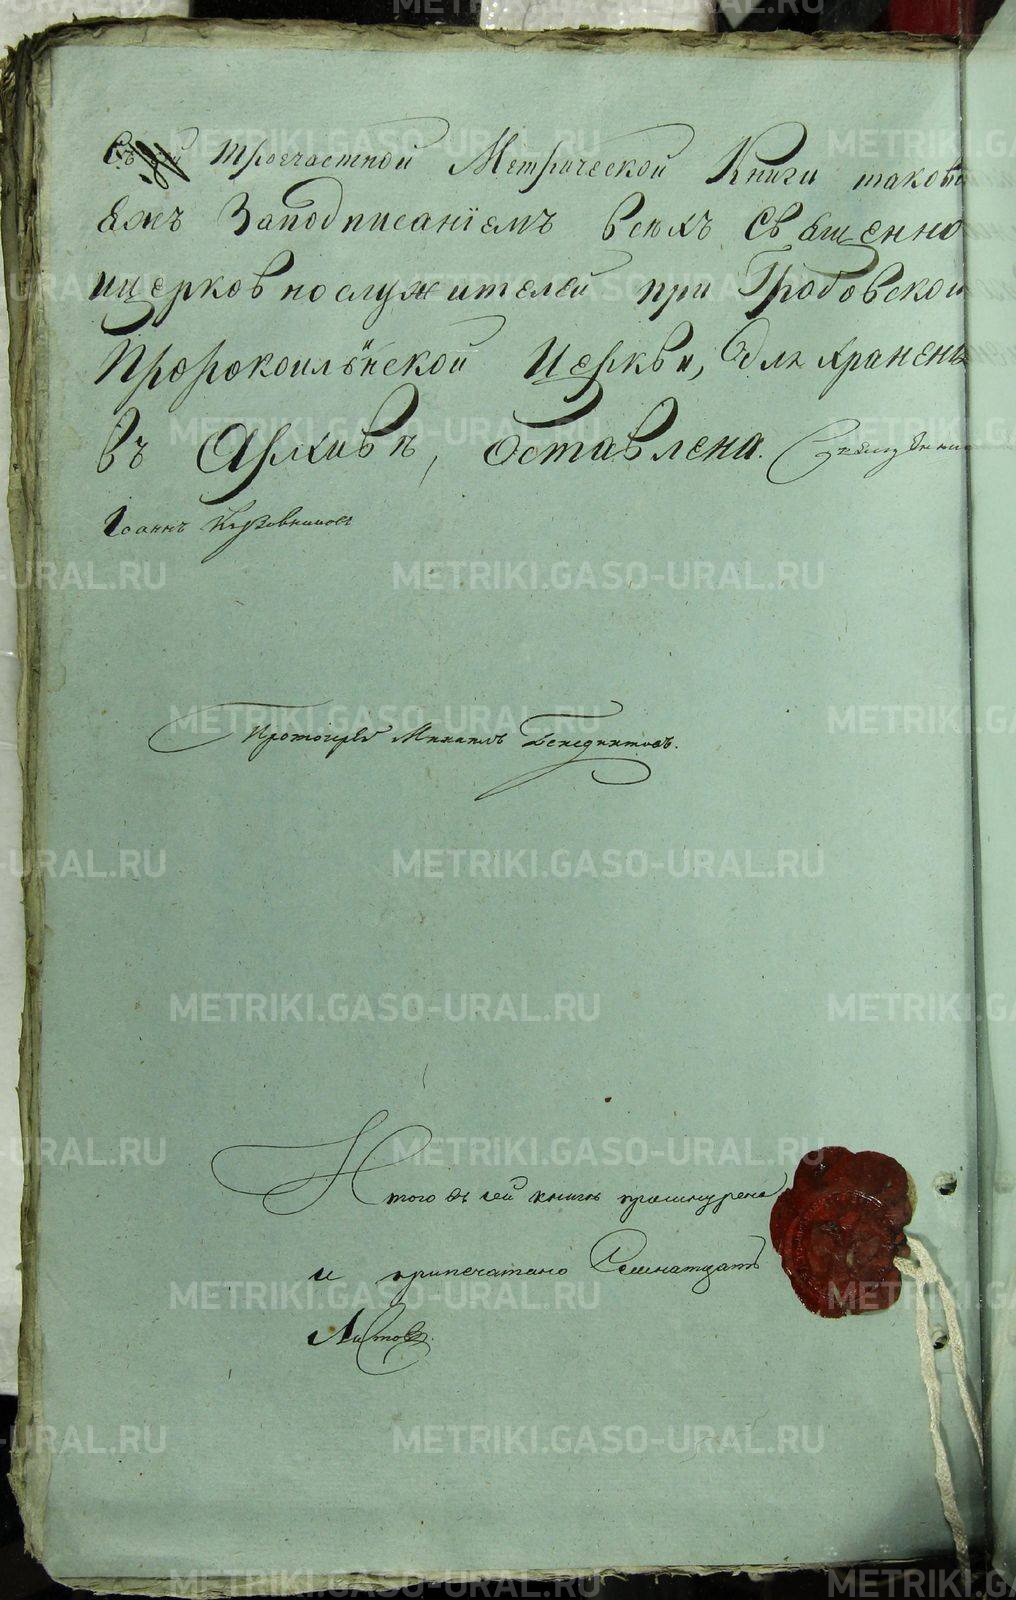 Съ сей троечастной Метрической Книги такова
яжъ Заподписаніемъ всѣхъ Священно
ицерковнослужителей при Гробовской
Пророкоильинской Церкви, для хранения
въ Архивѣ, оставлена. Священникъ
Іоаннъ
Протоиерей Михаилъ Бенедиктовъ.
Итого въ сей книгѣ прошнурено
и припечатано Семнатцать
Листовъ.
METRIKI.GASO-URAL.RU